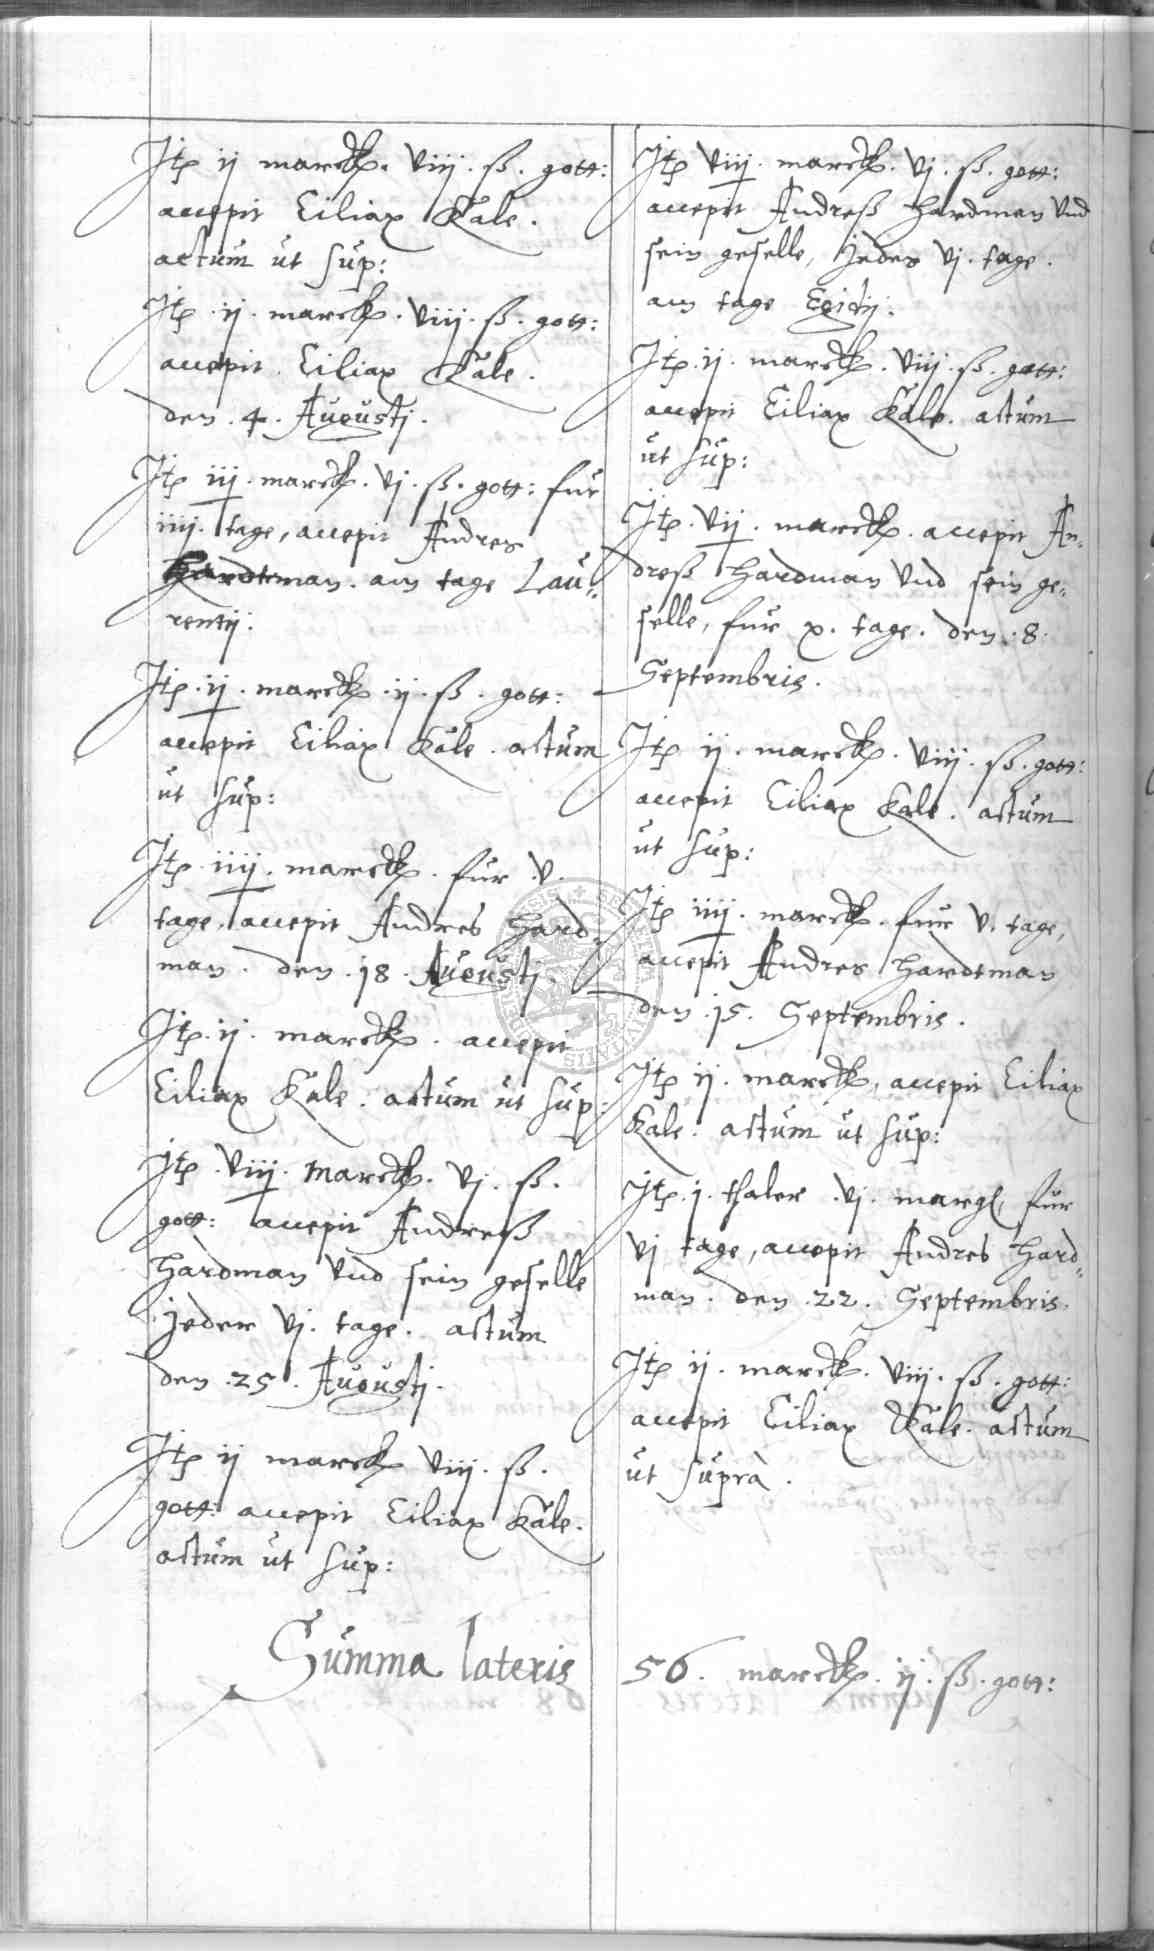 Itp ij marck. viij. ß. gott:
accepit Ciliax Kale.
actum ut sup:
Itp. ij. marck. viij. ß. gott:
accepit Ciliax Kale.
den. 4. Augustj.
Itp iij. marck. vj. ß. gott: fur
iiij. tage, accepit Andres
Hardtman. am tage Lau=
rentij.
Itp. ij. marck. ij. ß. gott:
accepit Ciliax Kale. actum
ut sup:
Itp. iiij. marck. fur. v.
tage, accepit Andres Hard=
man. den. 18. Augustj.
Itp. ij. marck. accepit
Ciliax Kale. actum ut sup:
Itp. viij. marck. vj. ß.
gott: accepit Andreß
Hardman vnd sein geselle
jeder vj. tage. actum
den. 25. Augustj.
Itp ij marck viij. ß.
gott: accepit Ciliax Kale.
actum ut sup:
Summa lateris
Itp viij. marck. vj. ß. gott:
accepit Andreß Hardman vnd
sein geselle, jeder vj. tage.
am tage Egidij.
Itp. ij. marck. viij. ß. gott:
accepit Ciliax Kale. actum
ut sup:
Itp. vij. marck. accepit An=
dreß Hardman vnd sein ge=
selle, fur x. tage. den. 8.
Septembris.
Itp ij. marck. viij. ß. gott:
accepit Ciliax Kale. actum
ut sup:
Itp iiij. marck. fur v. tage,
accepit Andres Hardtman
den. 15. Septembris.
Itp ij. marck, accepit Ciliax
Kale. actum ut sup:
Itp. j. thaler. vj. margl, fur
vj tage, accepit Andres Hard=
man. den. 22. Septembris.
Itp ij. marck. viij. ß. gott:
accepit Ciliax Kale. actum
ut suprà.
56. marck. ij. ß. gott: